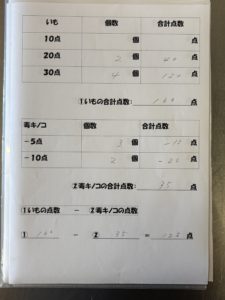 いも 個数 合計点数
10点 個 点
20点 2 個 40 点
30点 4 個 120 点
①いもの合計点数: 160 点
毒キノコ 個数 合計点数
-5点 3 個 -15 点
-10点 2 個 -20 点
②毒キノコの合計点数: 35 点
①いもの点数 - ②毒キノコの点数
① 160 - ② 35 = 125 点